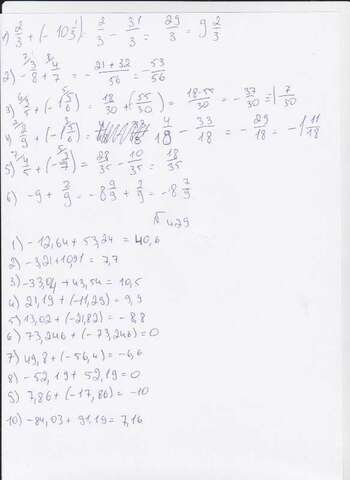 1) 2/3 + (- 10 1/3) = 2/3 - 31/3 = 29/3 = 9 2/3
2) - 3/8 + 4/7 = - 21+32/56 = 53/56
3) 3/5 + (- 5/6) = 18/30 + (55/30) = 18-55/30 = - 37/30 = -1 7/30
4) 2/9 + (- 5/6) = 4/18 - 33/18 = - 29/18 = -1 11/18
5) 4/5 + (- 2/7) = 28/35 - 10/35 = 18/35
6) -9 + 2/9 = -8 9/9 + 2/9 = -8 7/9
№ 479
1) - 12,64 + 53,24 = 40,6
2) -3,21 + 10,91 = 7,7
3) -33,04 + 43,54 = 10,5
4) 21,19 + (-11,29) = 9,9
5) 13,02 + (-21,82) = - 8,8
6) 73,246 + (-73,246) = 0
7) 49,8 + (-56,4) = -6,6
8) - 52,19 + 52,19 = 0
9) 7,86 + (-17,86) = -10
10) -84,03 + 91,19 = 7,16